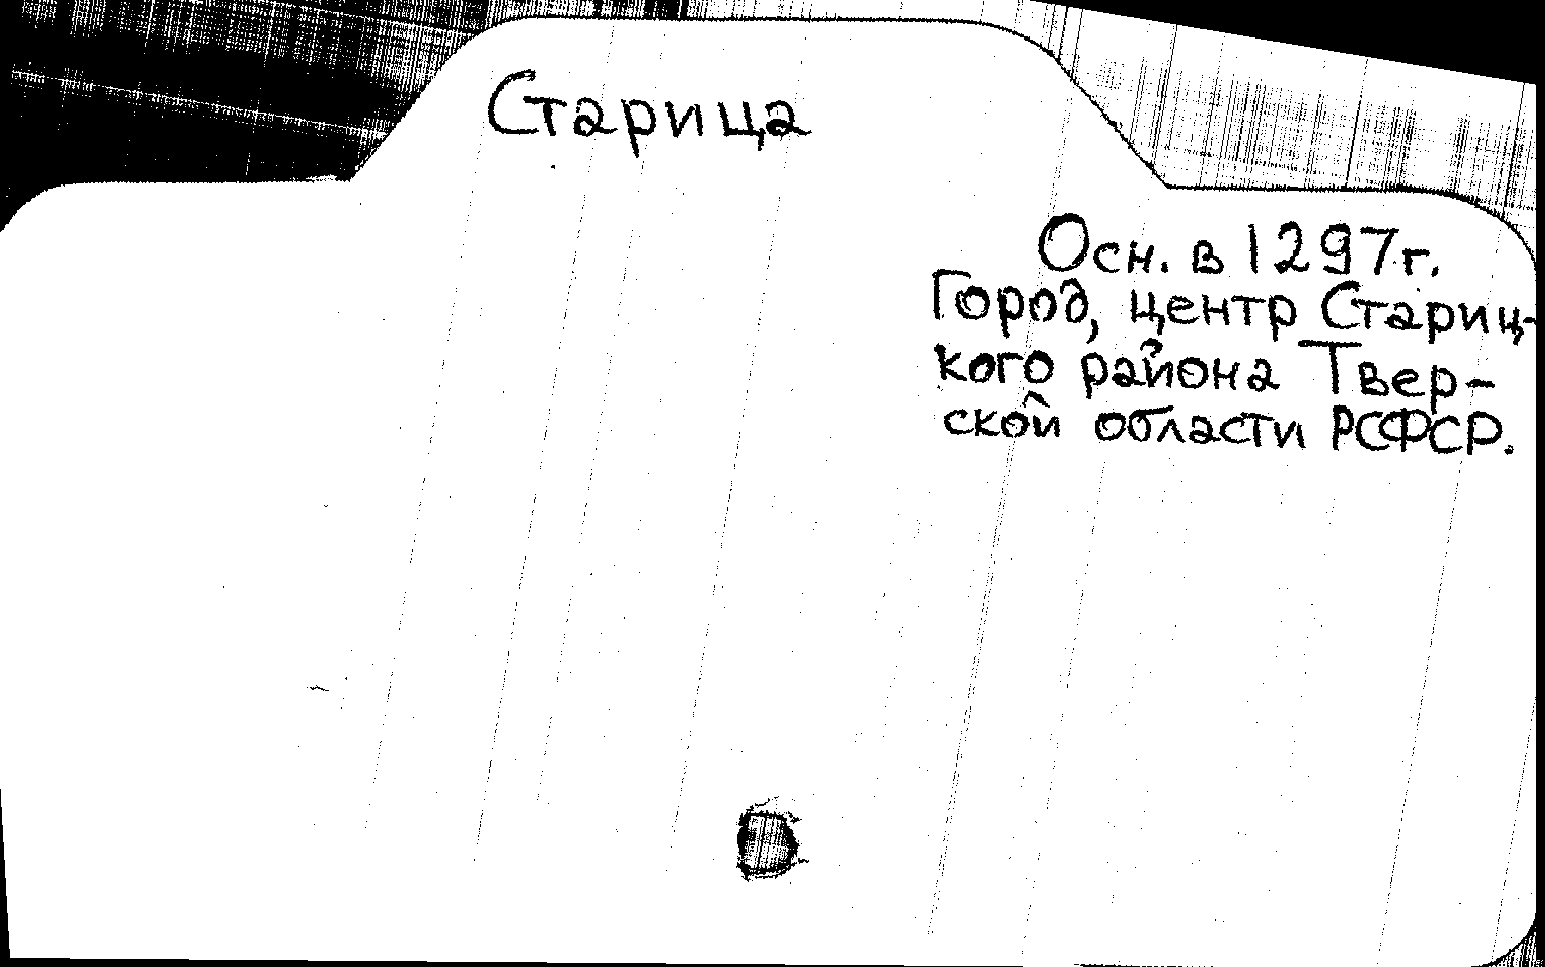 Старица
Осн. в 1297г.
Город, центр Стариц-
кого района Твер-
ской области РСФСР.